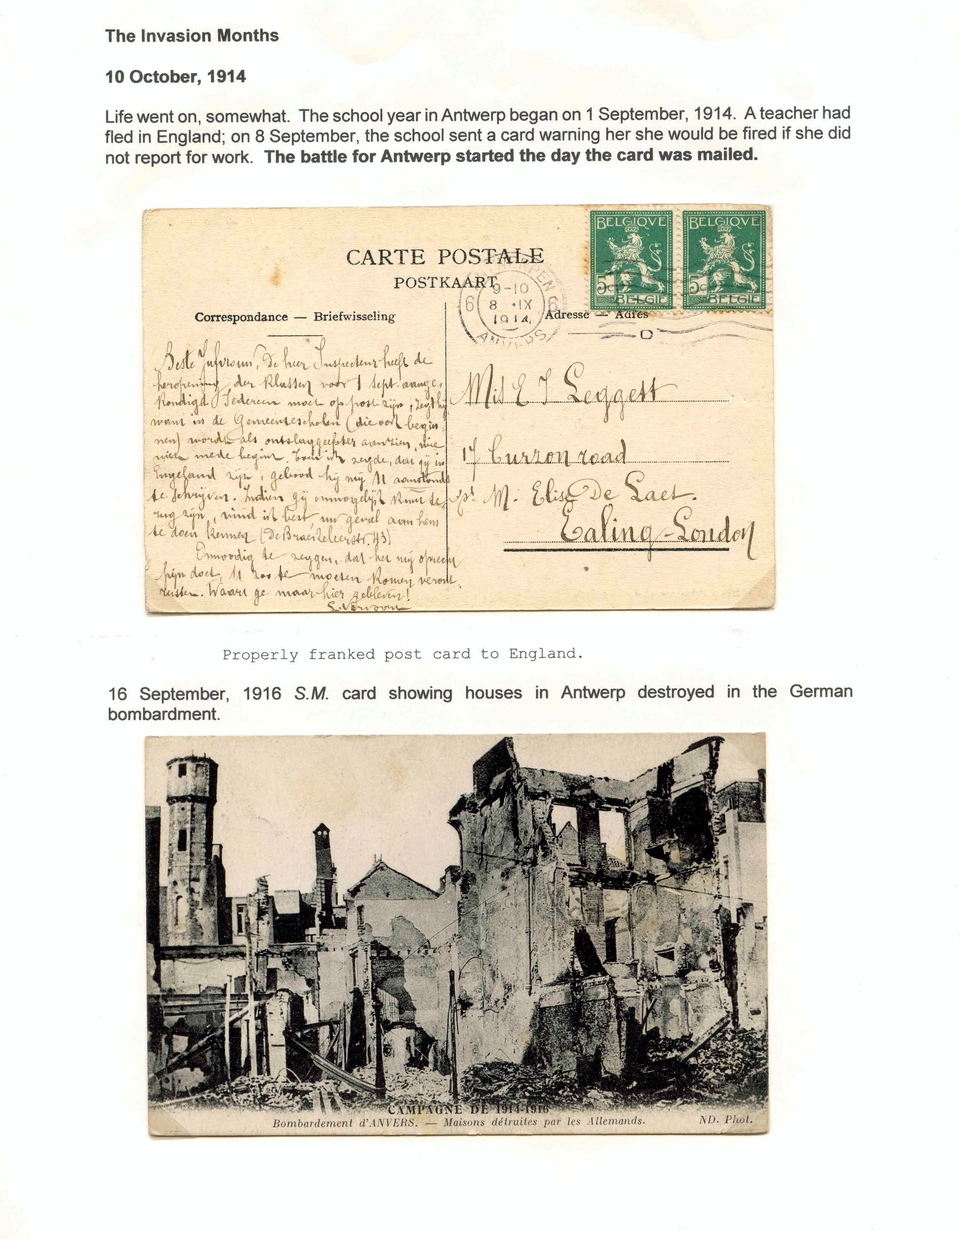 The Invasion Months
10 October, 1914
Life went on, somewhat. The school year in Antwerp began on 1 September, 1914. A teacher had
fled in England; on 8 September, the school sent a card warning her she would be fired if she did
not report for work. The battle for Antwerp started the day the card was mailed.
BELGIQUE BELGIQUE
5c 5c
BELGIE BELGIE
CARTE POSTALE
POSTKAART
9-10
6 8 · IX 6
1914
ANVERS
Correspondance — Briefwisseling
Adresse — Adres
Beste Jufvrouw, De heer Inspecteur heeft de
heropening der klassen voor 1 Sept. aange-
kondigd. Iedereen moet op post zijn, zegt hij
want in de Gemeentescholen (die ook begin
nen) wordt als ontslaggeefster aanzien, wie
niet mede begint. Toen ik zegde, dat gij in
Engeland zijt, gebood hij mij U aanstonds
te schrijven. Indien gij onmogelijk kunt te-
rug zijn, vind ik best uw geval aan hem
te doen kennen (De Braekeleerstr. 43)
Onnoodig te zeggen, dat het mij oprecht
pijn doet, U zoo te moeten komen veront
rusten. Waart ge maar hier gebleven!
Miss E J Leggett
17 Curzon road
pr M. Elise De Laet.
Ealing-London
Properly franked post card to England.
16 September, 1916 S.M. card showing houses in Antwerp destroyed in the German
bombardment.
CAMPAGNE DE 1914-1916
Bombardement d'ANVERS. — Maisons détruites par les Allemands.
ND. Phot.